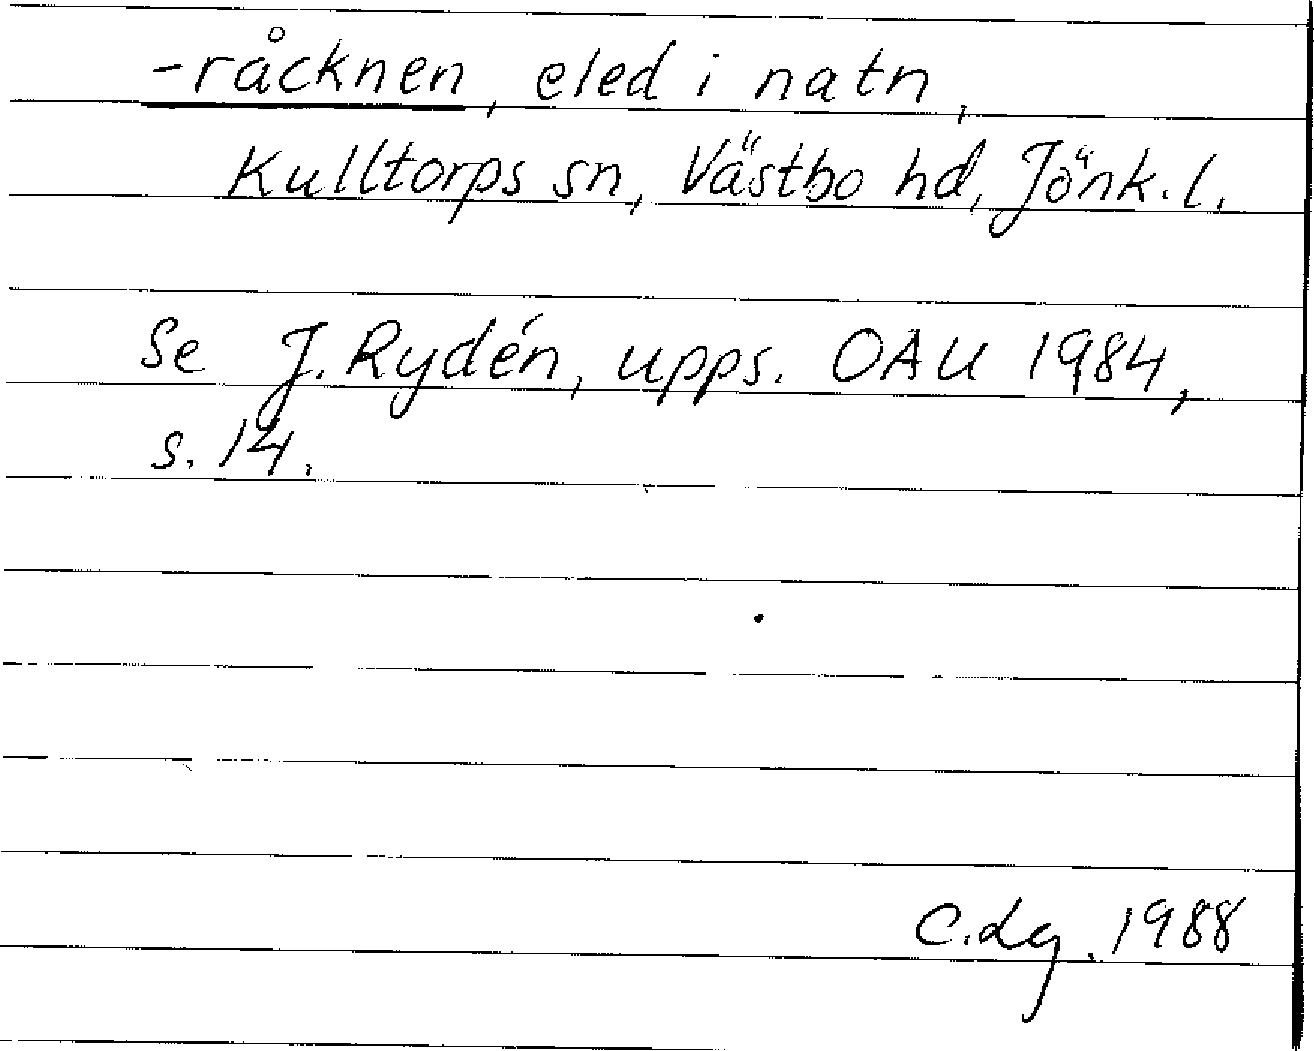 -råcknen, eled i natn,
Kulltorps sn, Västbo hd, Jönk. l.
Se J. Rydén, upps. OAU 1984,
s. 14.
C. Lg. 1988